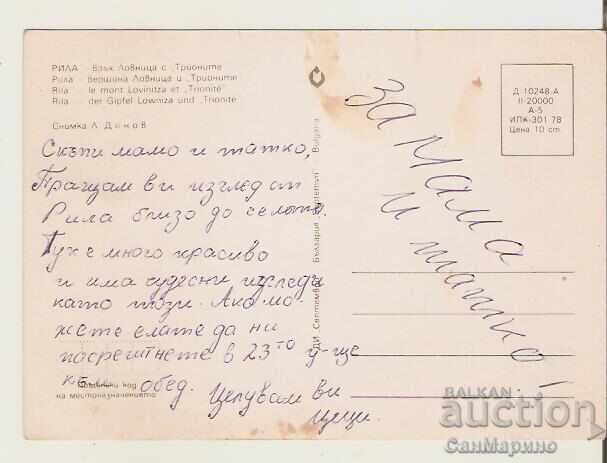 РИЛА - Връх Ловница с „Трионите
Рила - Вершина Ловница и „Трионите
Rila - le mont Lovinitza et „Trionité"
Rila - der Gipfel Lowniza und „Trionite
Снимка Л. Диков
Скъпи мамо и татко,
Пращам ви изглед от
Рила близо до селото.
Тук е много красиво
и има чудесни изгледи
като този. Ако мо-
жете елате да ни
посрещнете в 23то у-ще
към обед. Целувам ви
Цеци.
Пощенски код
на местоназначението
ДИ „Септември" България
Bulgaria
ЗА МАМА
И татко!
Д-10248-А
II-20000
А-5
ИПК-301 78
Цена 10 ст.
BALKAN
auction
СанМарино